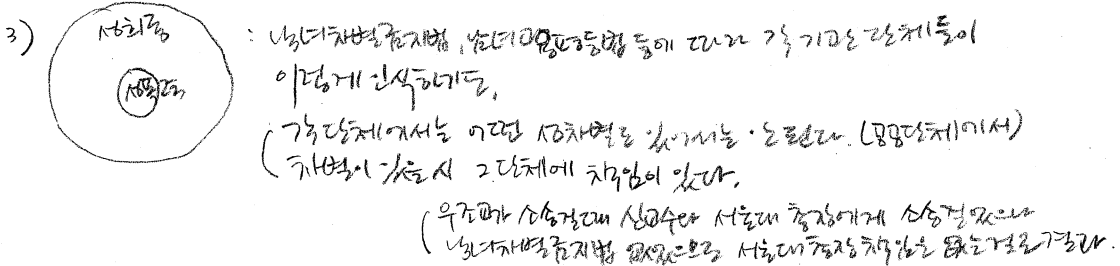 3) 성희롱 : 남녀차별금지법, 남녀고용평등법 등에 따라 각 기관 단체들이
성폭력 이렇게 인식하기도.
( 각 단체에서는 어떤 성차별도 있어서는 안된다. (공공단체에서)
차별이 있을 시 그 단체에 책임이 있다.
( 우조교가 소송걸때 신교수와 서울대 총장에게 소송걸었으나
남녀차별금지법 없었으므로 서울대총장 책임은 없는걸로 결과.